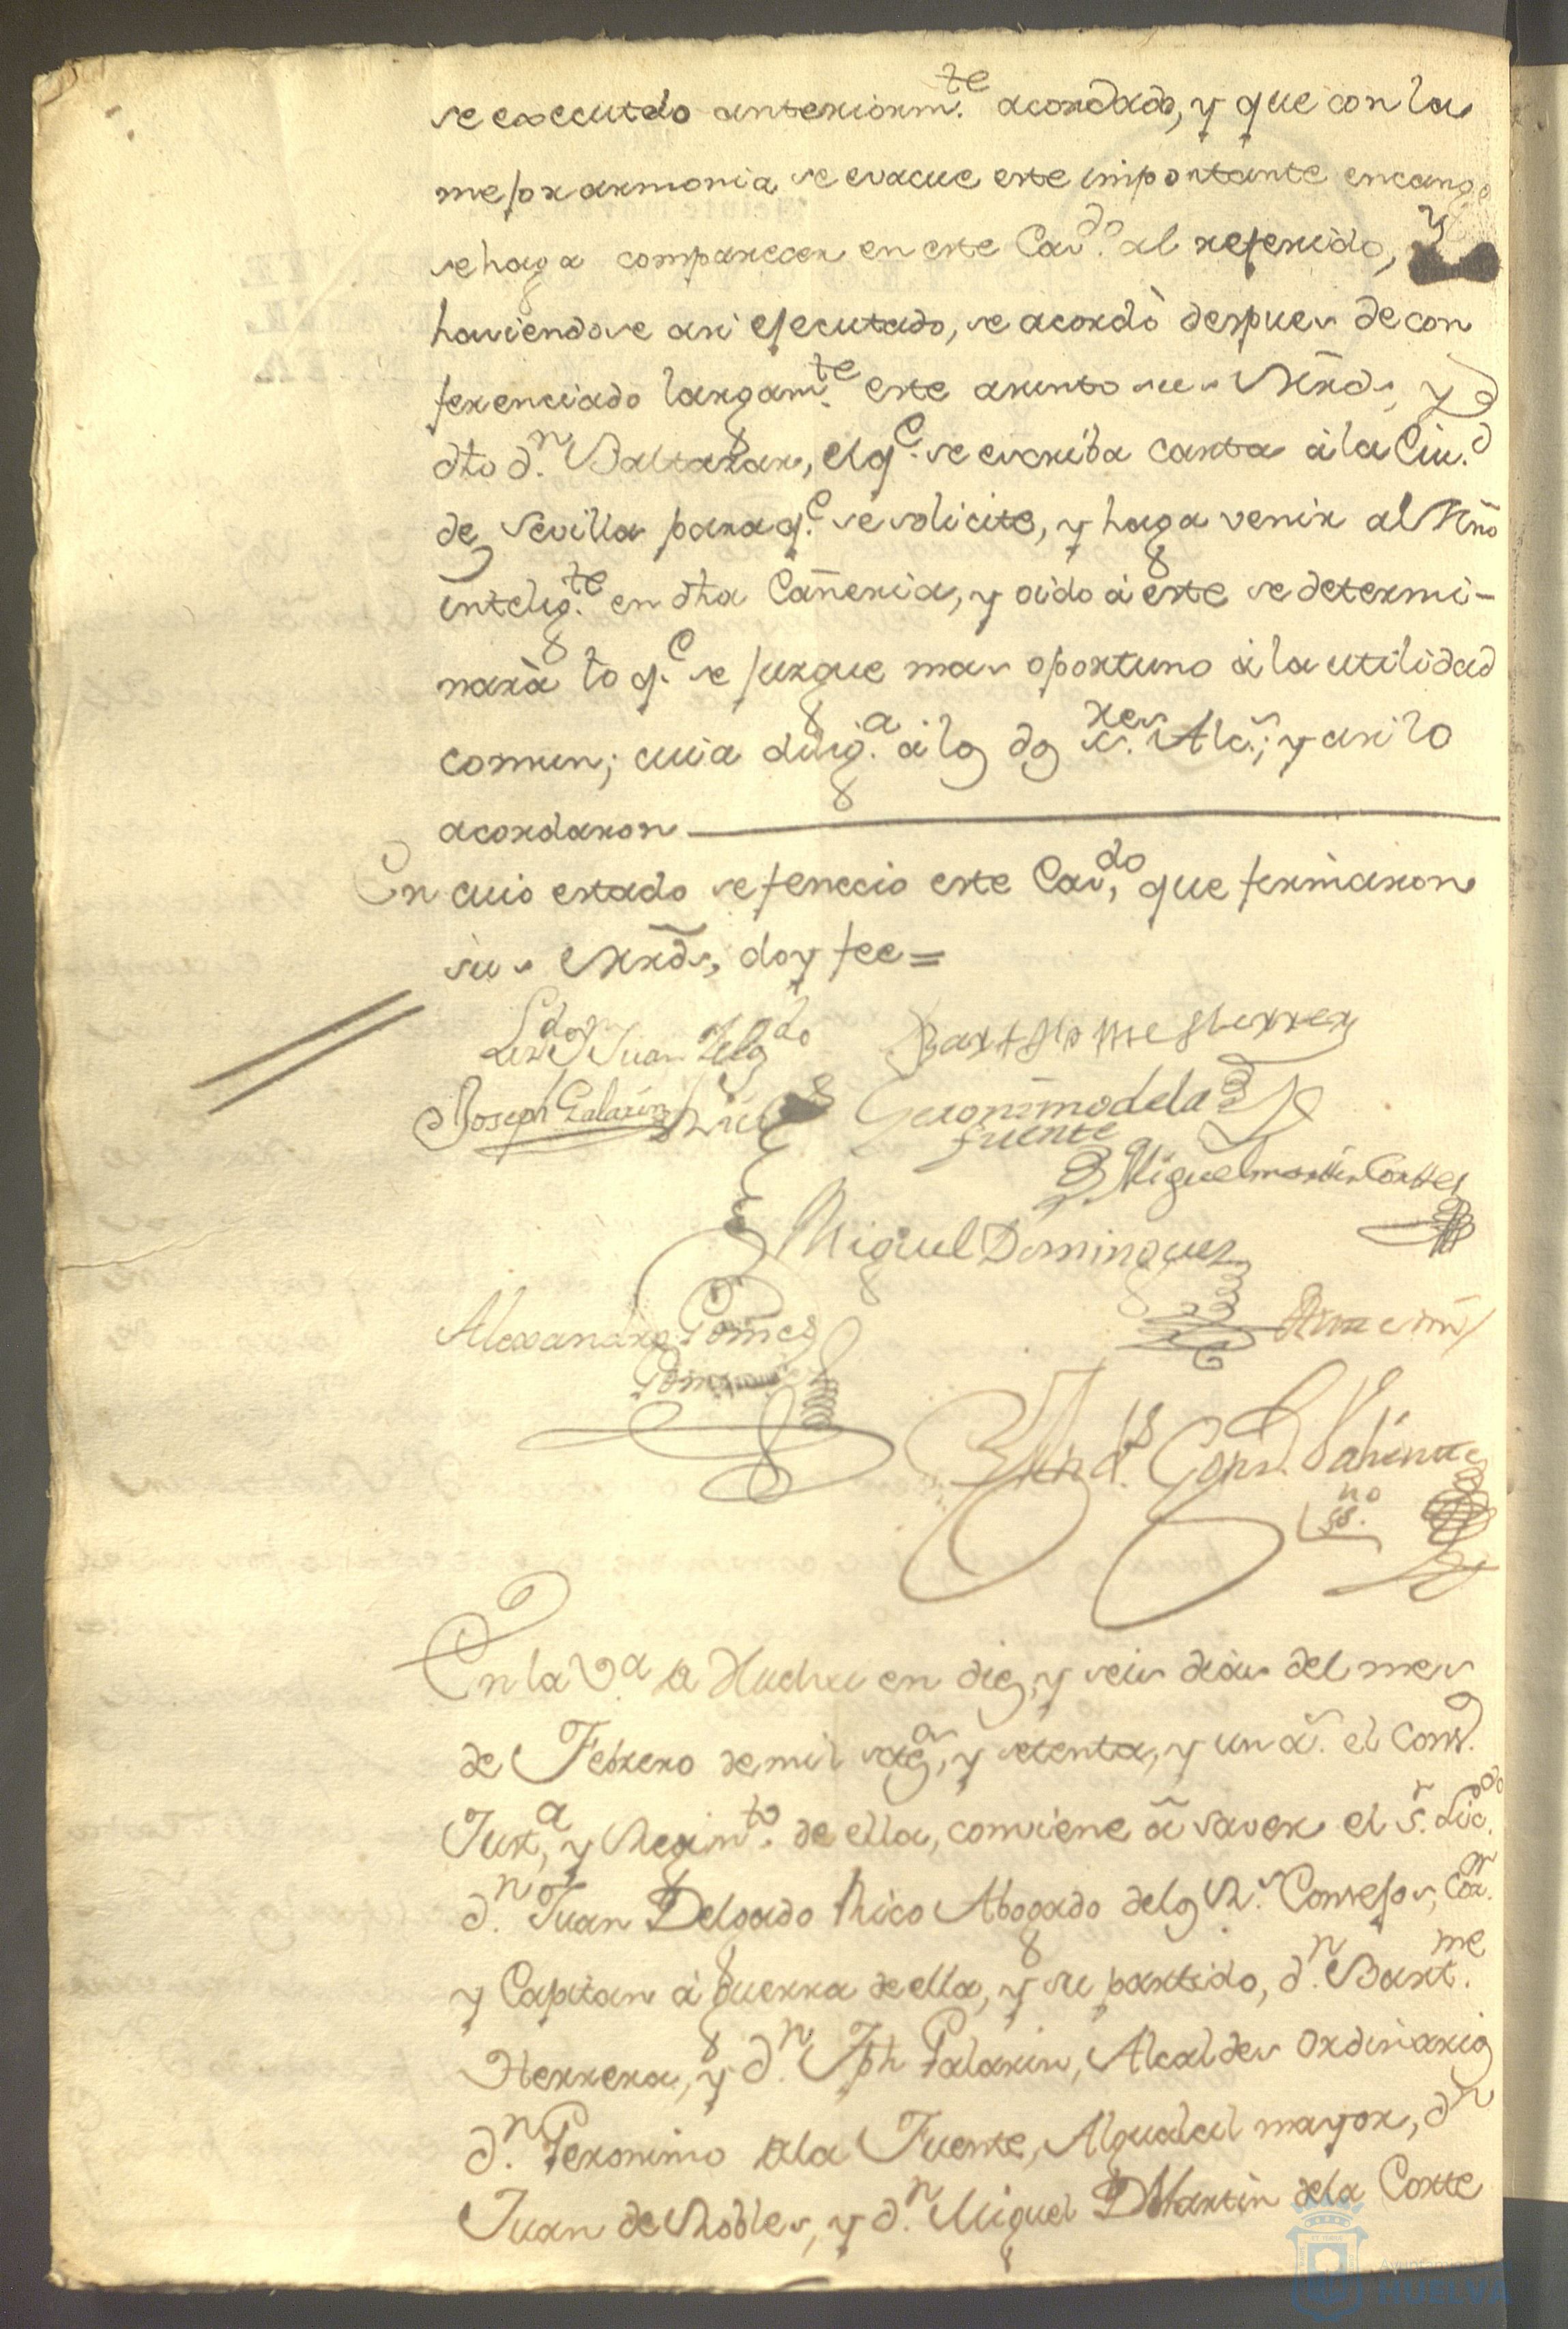 se executdo anteriorm.te acordado, y que con la
mejor armonia se evacue este importante encargo
se haga comparecer en este Cav.do al referido, y
haviendose asi ejecutado, se acordò despues de con
ferenciado largam.te este asunto sus Mrds, y
dho d.n Baltazar, el q.e se escriba carta à la Ciu.d
de Sevilla para q.e se solicite, y haga venir al Mro
intelig.te en dha Cañeria, y oido à este se determi-
narà lo q.e se jusgue mas oportuno à la utilidad
comun; cuia dilig.a à los dos s.res Alc.s; y asi lo
acordaron
En cuio estado se fenecio este Cav.do, que firmaron
sus Mrds, doy fee=
Lizdo Dn Juan Delgdo Bartholome Herrera
Joseph Galarin Geronimo de la
fuente
Miguel martin Cortes
Miguel Dominguez
Alexandro Gomes
Ante mi
Cons.
ss.no
En la V.a de Huelva en dies, y seis dias del mes
de Febrero de mil setos, y setenta, y un a.s el Cons.
Just.a, y Regim.to de ella, comviene à saver el s.r Lic.do
d.n Juan Delgado Rico Abogado de los R.s Consejos, Cor.or
y Capitan à guerra de ella, y su partido, d.n Bart.me
Herrera, y d.n Jph Galarin, Alcaldes ordinarios
d.n Geronimo de la Fuente, Alguacil mayor, d.n
Juan de Robles, y d.n Miguel Martin de la Corte
HUELVA